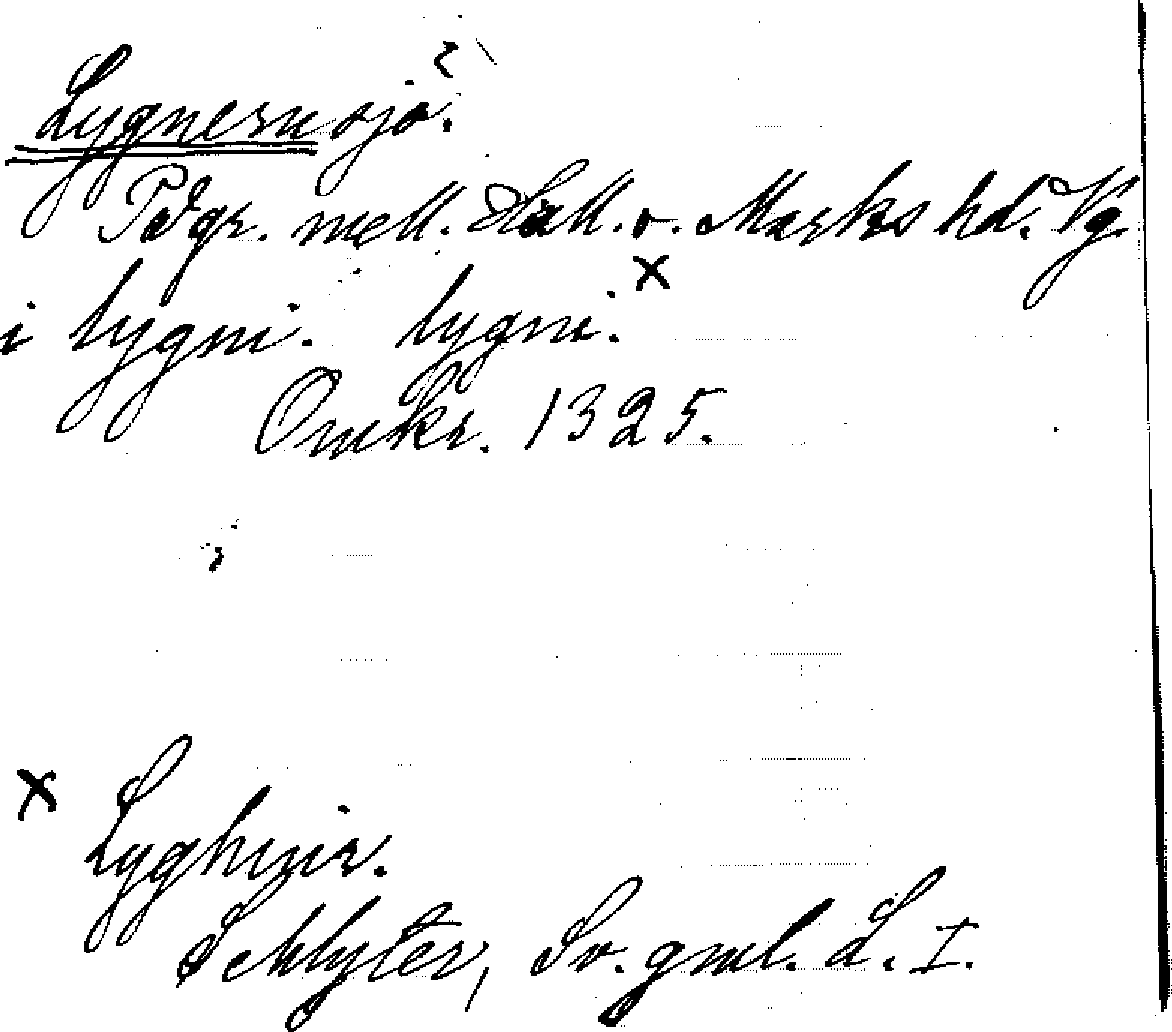 Lygnersnsjö.
På gr. mell. Hall. o. Marks hd. Vg
i lygni. lygni. x
Omkr. 1325.
x Lyghnir.
Schlyter, Sv. gml. L. I.